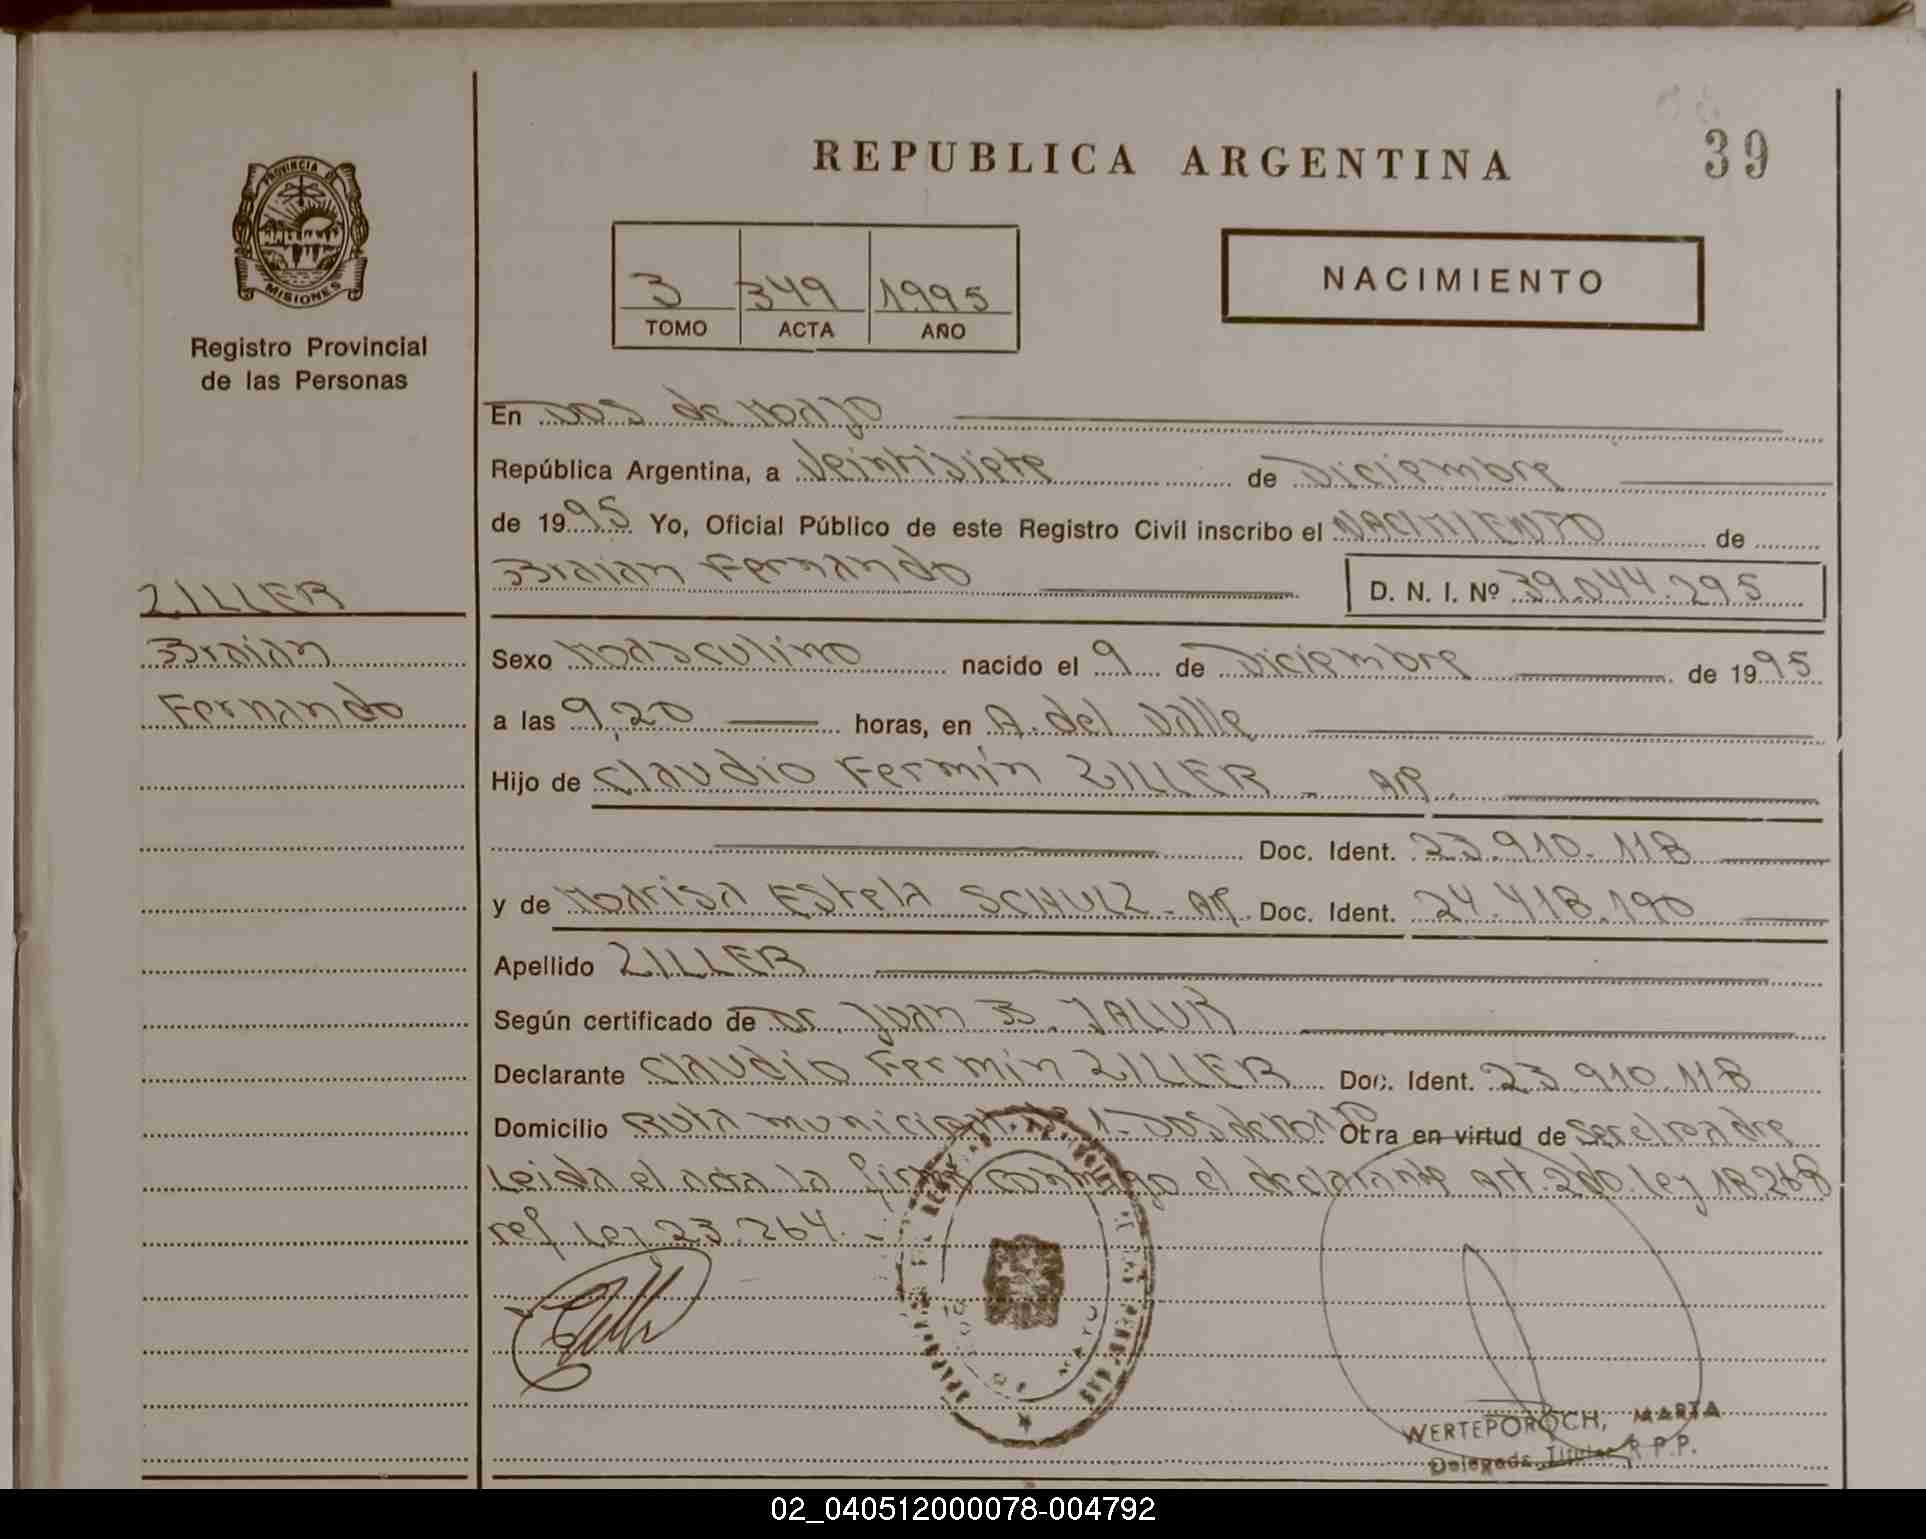 39
REPUBLICA ARGENTINA
PROVINCIA DE
MISIONES
Registro Provincial
de las Personas
3 349 1995
TOMO ACTA AÑO
NACIMIENTO
En Dos de Mayo
República Argentina, a Veintisiete de Diciembre
de 1995 Yo, Oficial Público de este Registro Civil inscribo el NACIMIENTO de
Braian Fernando D. N. I. Nº 39.044.295
ZILLER
Braian
Fernando
Sexo Masculino nacido el 9 de Diciembre de 1995
a las 9,20 horas, en A. del Valle
Hijo de Claudio Fermín ZILLER - AR.
Doc. Ident. 23.910.118
y de Marisa Estela SCHULZ - AR. Doc. Ident. 24.418.190
Apellido ZILLER
Según certificado de Dr. Juan B. JALUK
Declarante Claudio Fermin ZILLER Doc. Ident. 23.910.118
Domicilio Ruta municipal 1- Dos de Mayo Otra en virtud de ser el padre
Leida el acta la firma conmigo el declarante art. 2do. Ley 18.268
ref Ley 23.264.-
WERTEPOROCH, MARTA
Delegada Titular R.P.P.
02_040512000078-004792